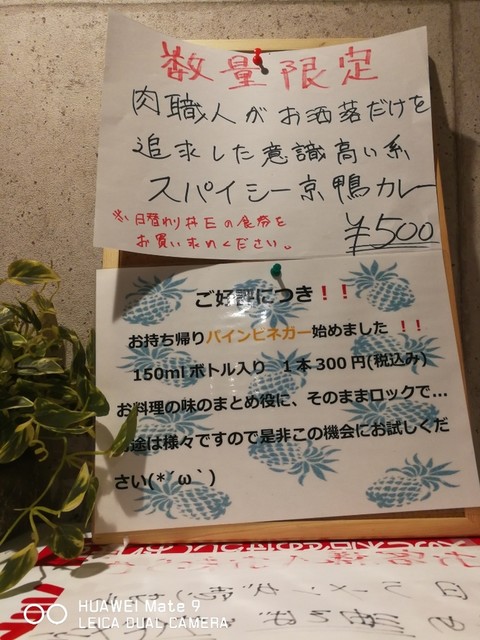 数量限定
肉職人がお洒落だけを
追求した意識高い系
スパイシー京鴨カレー
※日替わり丼Eの食券を
お買い求めください。
¥500
ご好評につき！！
お持ち帰りパインビネガー始めました ！！
150mlボトル入り 1本300円(税込み)
お料理の味のまとめ役に、そのままロックで…
用途は様々ですので是非この機会にお試しくだ
さい(*´ω｀)
HUAWEI Mate 9
LEICA DUAL CAMERA